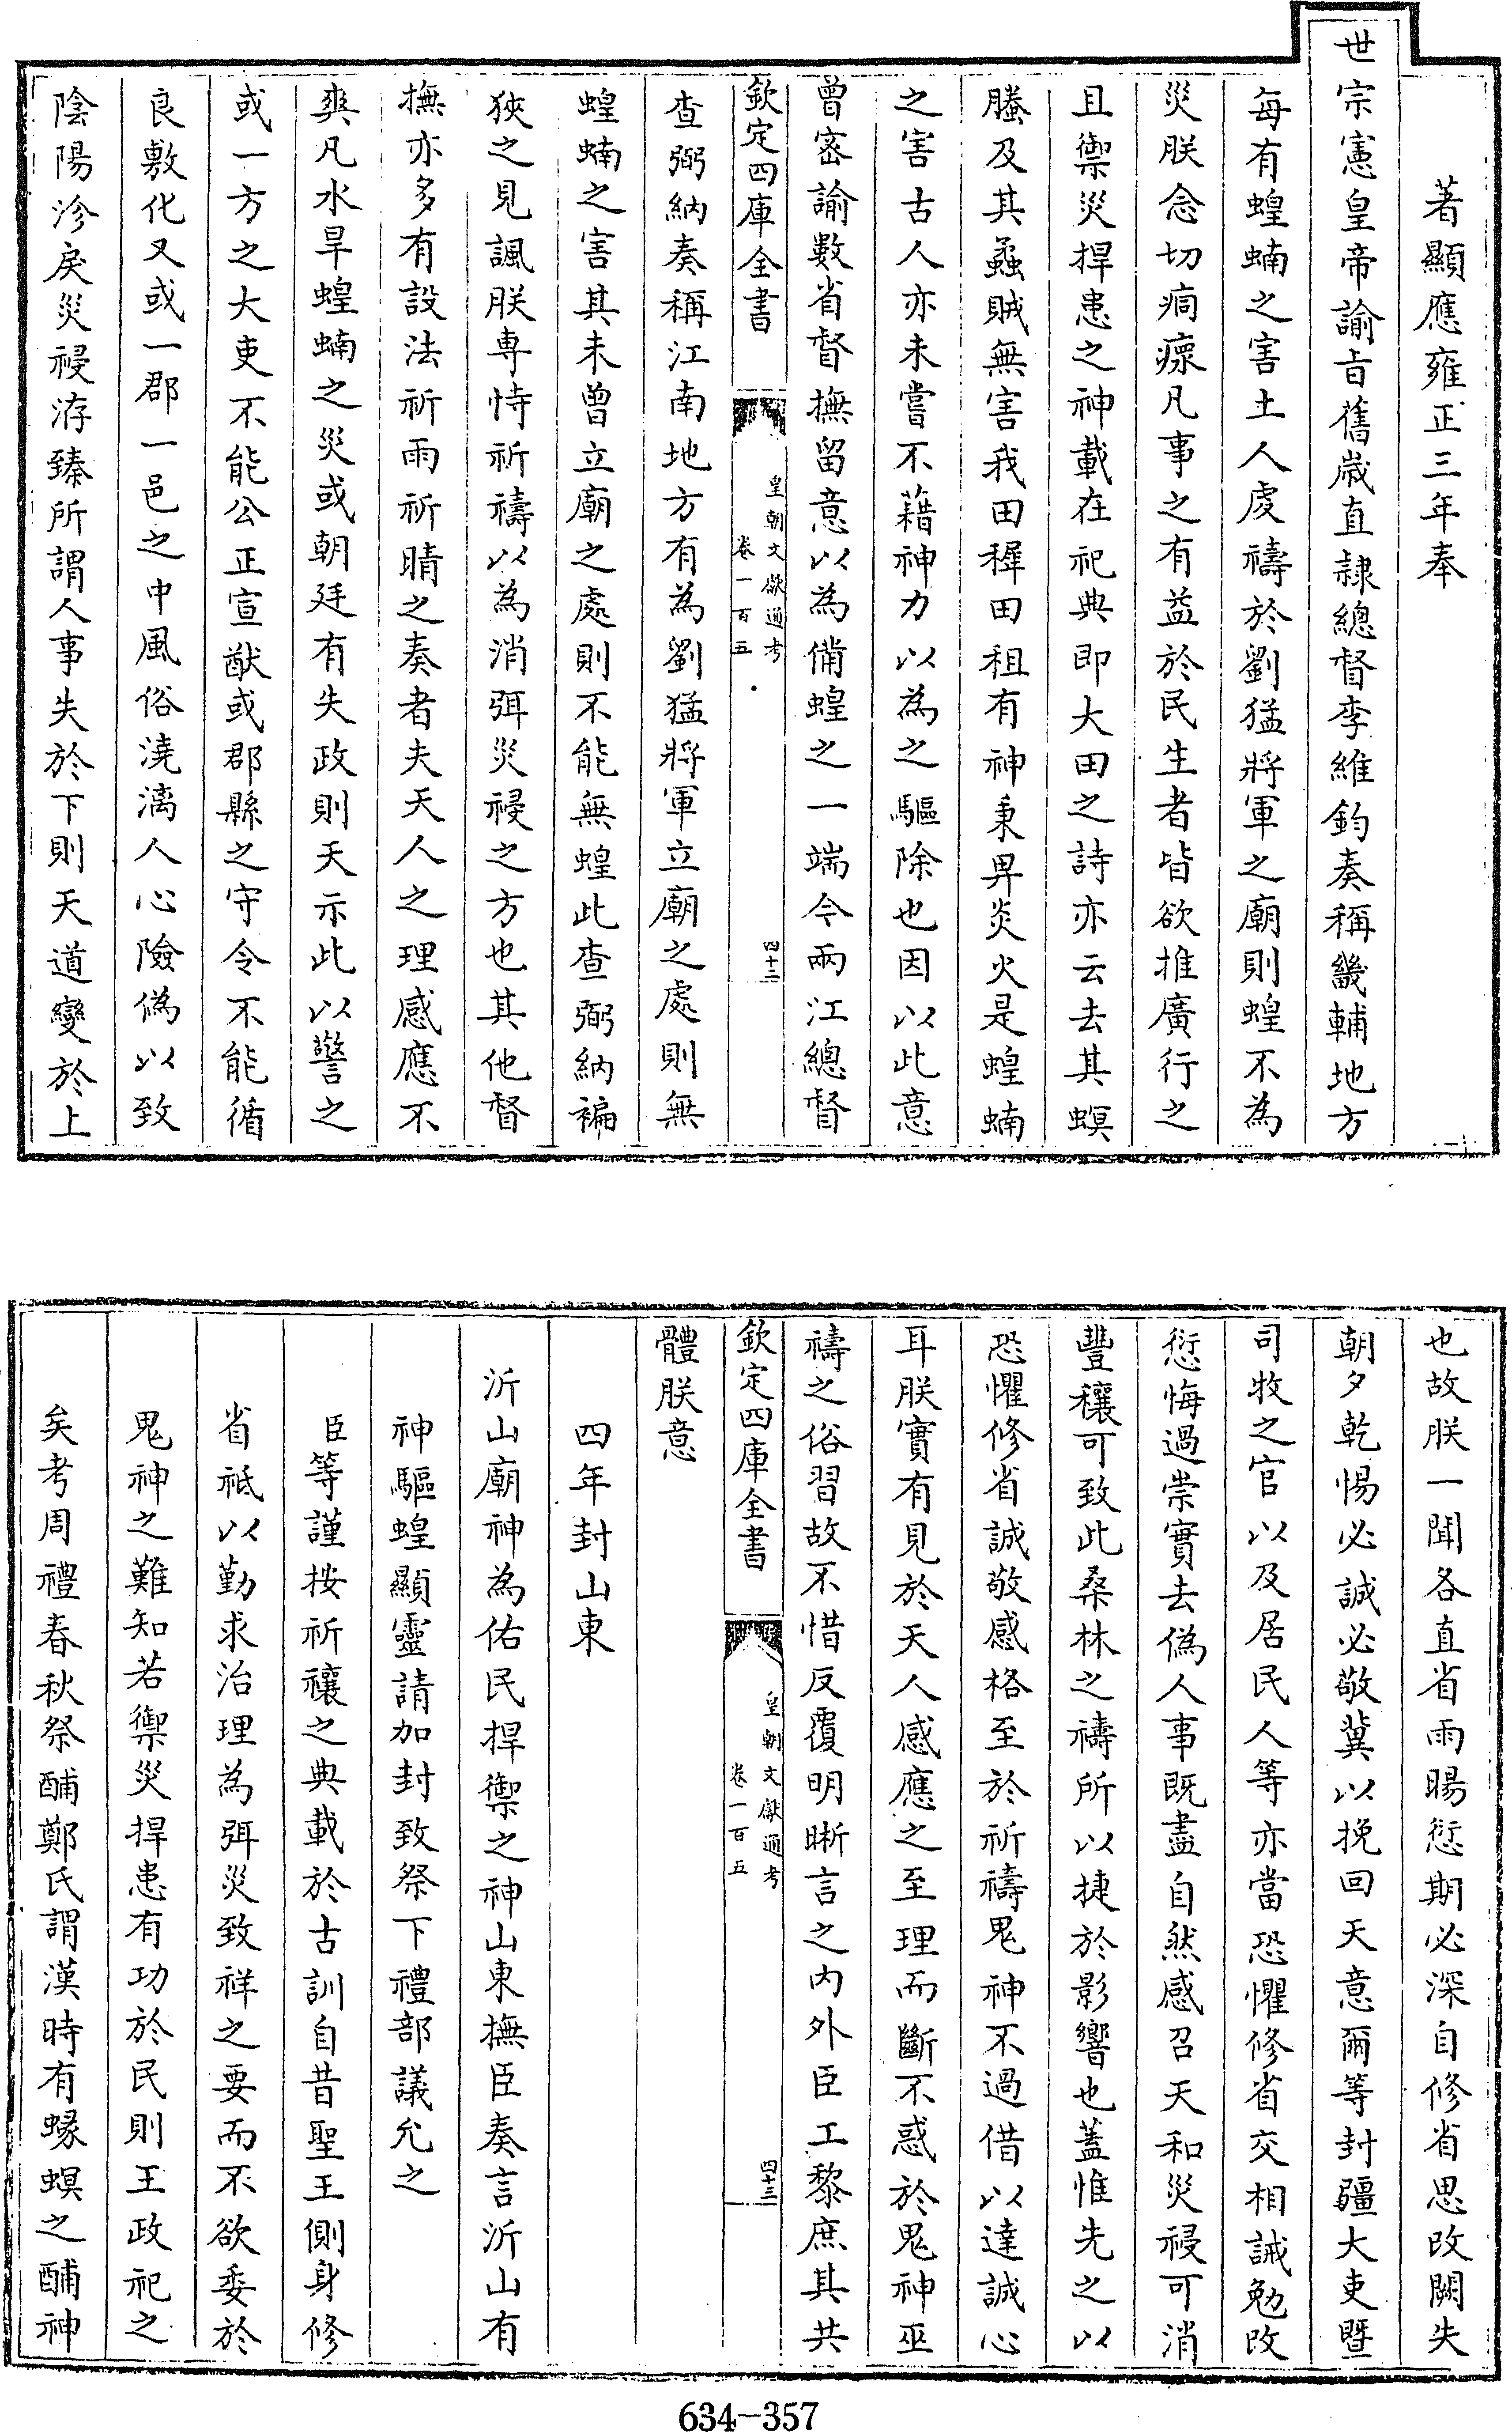 著顯應雍正三年奉
世宗憲皇帝諭旨舊歲直隸總督李維鈞奏稱畿輔地方
每有蝗蝻之害土人虔禱於劉猛將軍之廟則蝗不為
災朕念切痌瘝凡事之有益於民生者皆欲推廣行之
且禦災捍患之神載在祀典即大田之詩亦云去其螟
螣及其蟊賊無害我田穉田祖有神秉畀炎火是蝗蝻
之害古人亦未嘗不藉神力以為之驅除也因以此意
曾密諭數省督撫留意以為備蝗之一端今兩江總督
欽定四庫全書
皇朝文獻通考
卷一百五
四十二
查弼納奏稱江南地方有為劉猛將軍立廟之處則無
蝗蝻之害其未曾立廟之處則不能無蝗此查弼納褊
狹之見諷朕専恃祈禱以為消弭災祲之方也其他督
撫亦多有設法祈雨祈晴之奏者夫天人之理感應不
爽凡水旱蝗蝻之災或朝廷有失政則天示此以警之
或一方之大吏不能公正宣猷或郡縣之守令不能循
良敷化又或一郡一邑之中風俗澆漓人心險偽以致
陰陽沴戾災祲洊臻所謂人事失於下則天道變於上
也故朕一聞各直省雨暘愆期必深自修省思改闕失
朝夕乾惕必誠必敬冀以挽回天意爾等封疆大吏暨
司牧之官以及居民人等亦當恐懼修省交相誡勉改
愆悔過崇實去偽人事既盡自然感召天和災祲可消
豐穰可致此桑林之禱所以捷於影響也蓋惟先之以
恐懼修省誠敬感格至於祈禱鬼神不過借以達誠心
耳朕實有見於天人感應之至理而斷不惑於鬼神巫
禱之俗習故不惜反覆明晰言之內外臣工黎庶其共
欽定四庫全書
皇朝文獻通考
卷一百五
四十三
體朕意
四年封山東
沂山廟神為佑民捍禦之神山東撫臣奏言沂山有
神驅蝗顯靈請加封致祭下禮部議允之
臣等謹按祈禳之典載於古訓自昔聖王側身修
省祗以勤求治理為弭災致祥之要而不欲委於
鬼神之難知若禦災捍患有功於民則王政祀之
矣考周禮春秋祭酺鄭氏謂漢時有蝝螟之酺神
634-357